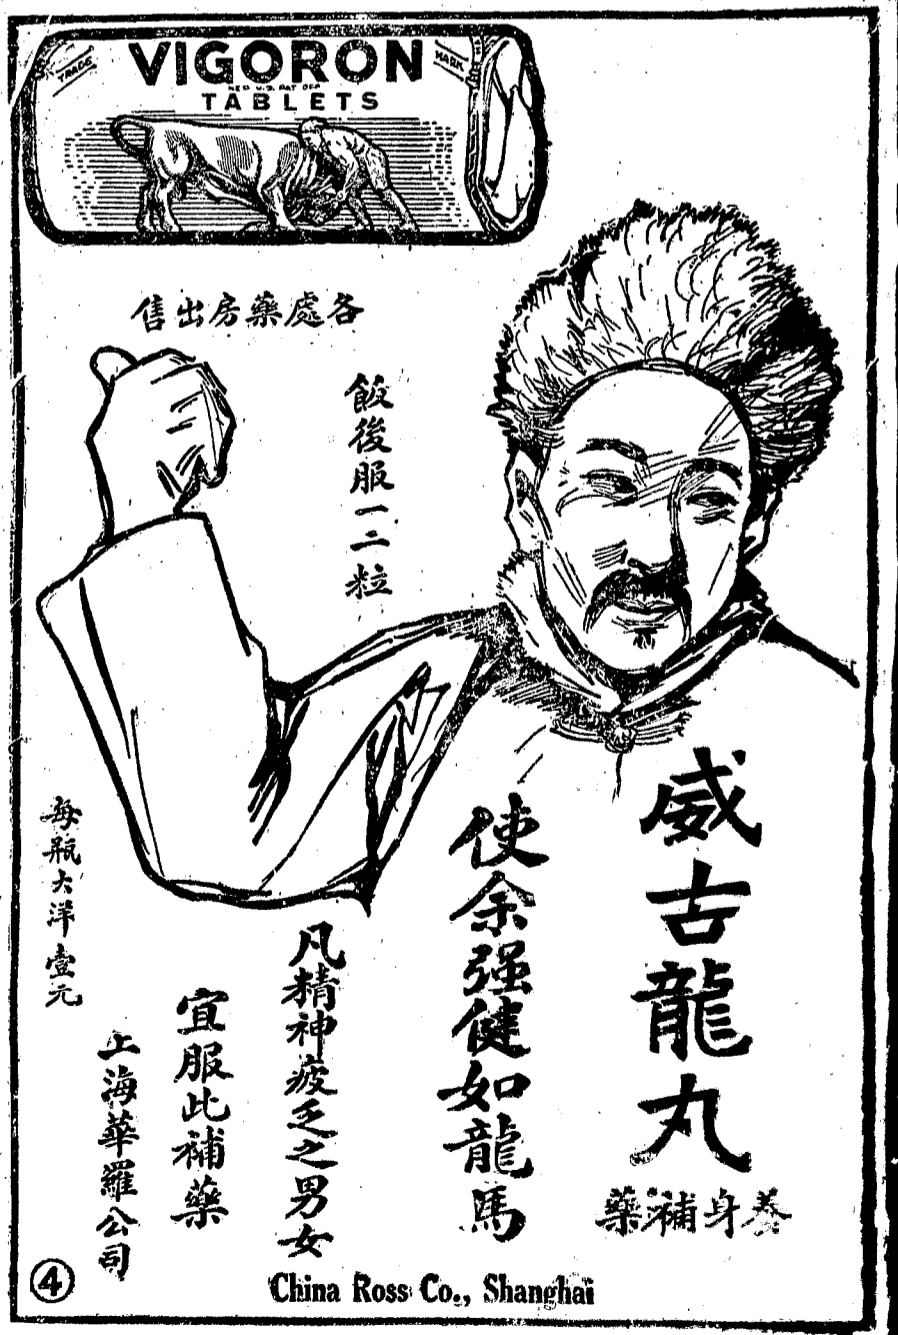 TRADE
VIGORON
MARK
REG U.S. PAT OFF
TABLETS
各處藥房出售
飯後服一二粒
威古龍丸
養身補藥
使余强健如龍馬
凡精神疲乏之男女
宜服此補藥
上海華羅公司
每瓶大洋壹元
④
China Ross Co., Shanghai